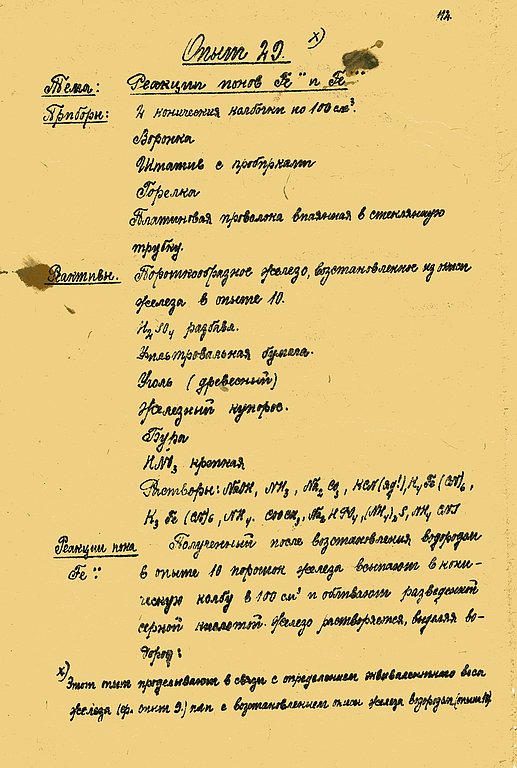 112.
Опыт 29. x)
Тема: Реакции ионов Fe¨ и Fe···
Приборы: 4 конические колбочки по 100 см³.
Воронка
Штатив с пробирками
Горелка
Платиновая проволока впаянная в стеклянную
трубку.
Реактивы. Порошкообразное железо, возстановленное из окиси
железа в опыте 10.
H₂SO₄ разбавл.
Фильтровальная бумага.
Уголь (древесный)
Железный купорос.
Бура
HNO₃ крепкая
Растворы: NaOH, NH₃, Na₂CO₃, KCN (яд!), K₄Fe(CN)₆,
K₃Fe(CN)₆, NH₄ Na₂HPO₄, (NH₄)₂S, NH₄CNS
Реакции иона Полученный после возстановления водородом
Fe¨: в опыте 10 порошок железа всыпают в кони-
ческую колбу в 100 см³ и обливают разведенной
серной кислотой. Железо растворяется, выделяя во-
дород:
x) Этот опыт проделывают в связи с определением эквивалентного веса
железа (ср. опыт 9.) или с возстановлением окиси железа водородом (опыт 10)